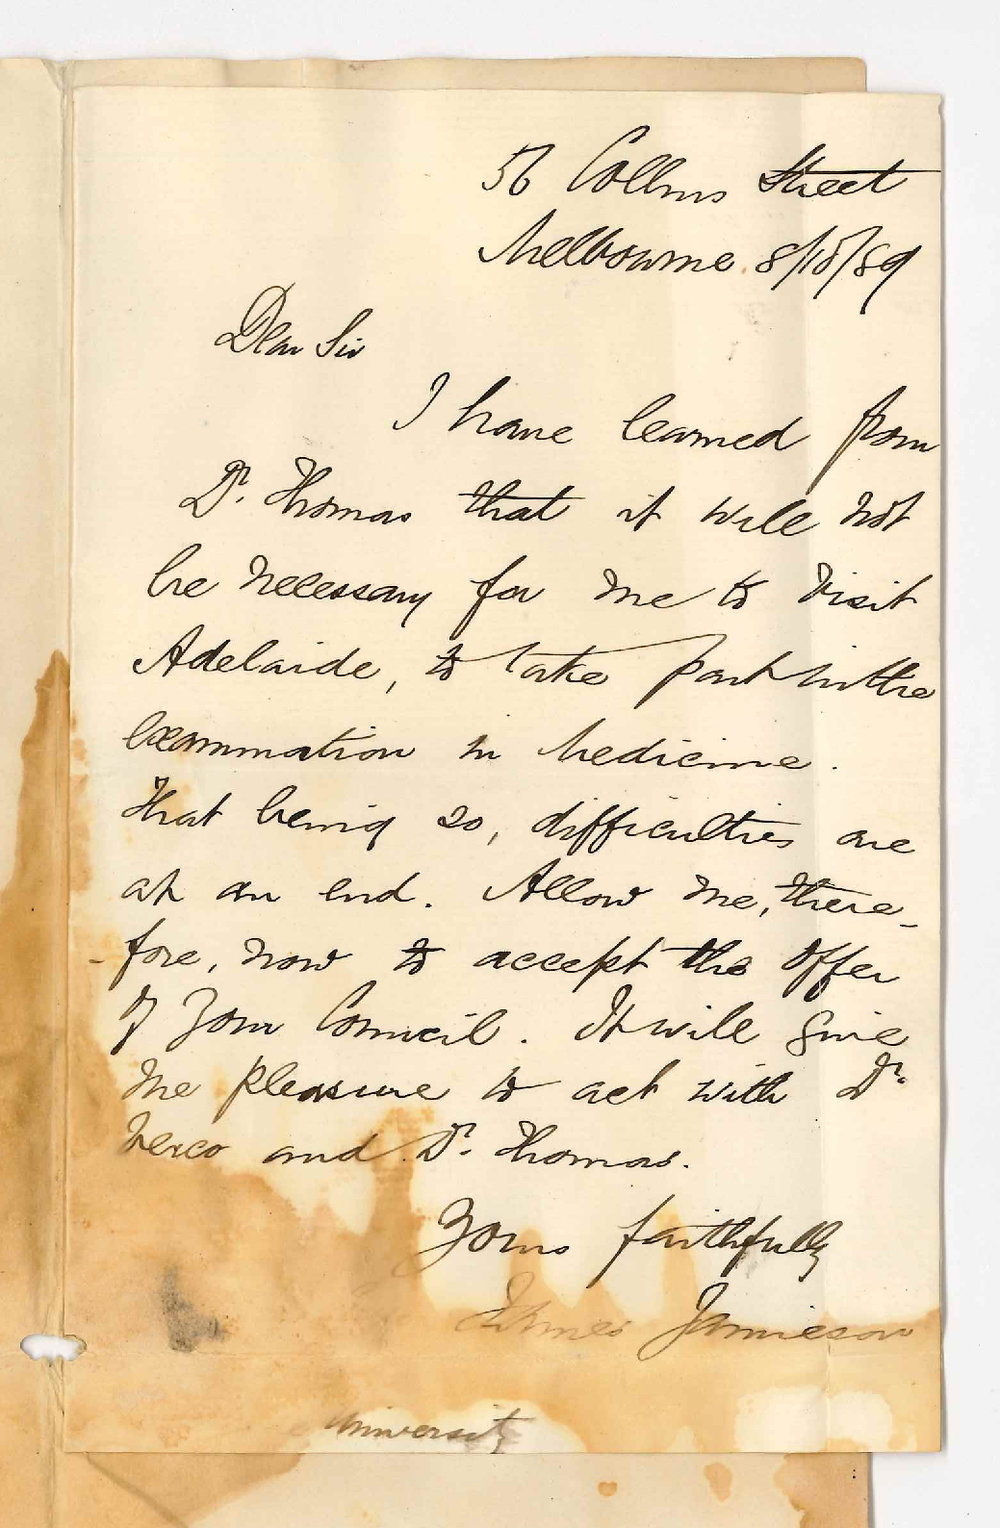 56 Collins Street
Melbourne 8/10/89
Dear Sir
I have learned from
Dr. Thomas that it will not
be necessary for me to visit
Adelaide, to take part in the
examination in Medicine.
That being so, difficulties are
at an end. Allow me, there-
-fore, now to accept the offer
of your Council. It will give
me pleasure to act with Dr.
Verco and Dr. Thomas.
Yours faithfully
James Jamieson
University